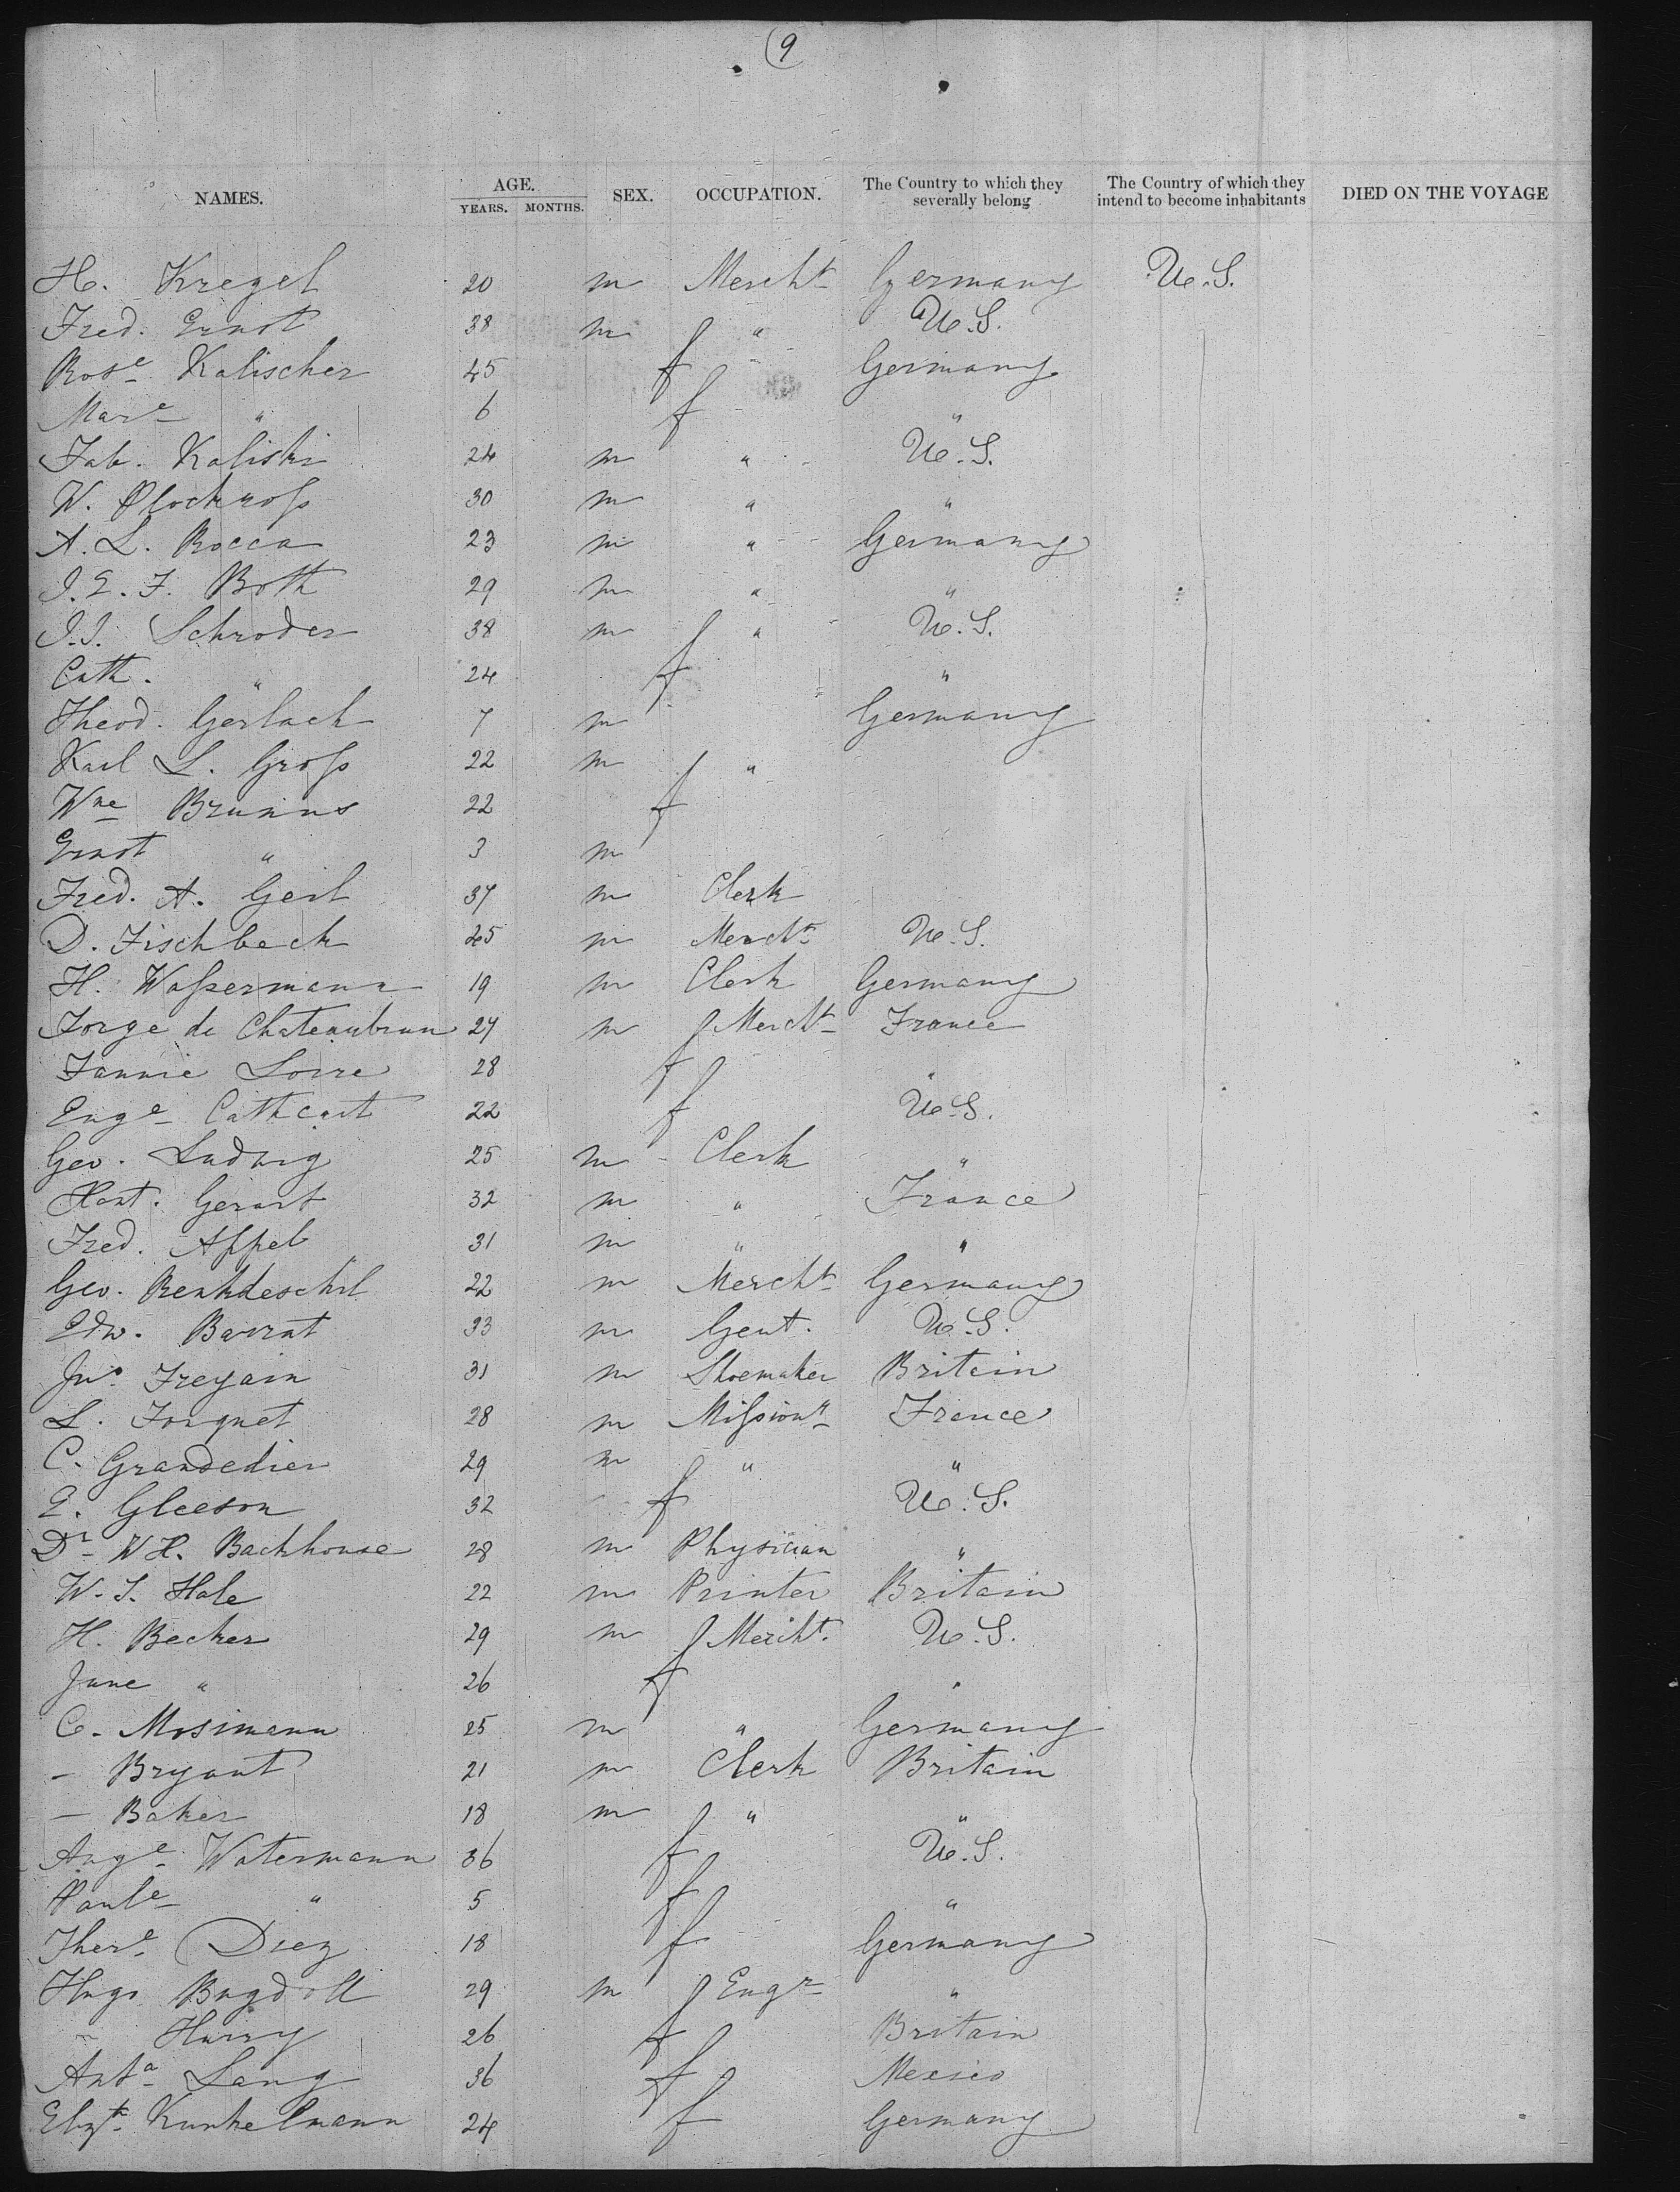 9
NAMES. AGE. SEX. OCCUPATION. The Country to which they severally belong The Country of which they intend to become inhabitants DIED ON THE VOYAGE
YEARS. MONTHS.
H. Kregel 20 m Mercht Germany U.S.
Fred. Ernst 38 m " U.S.
Rose Kalischer 45 f Germany
Mare " 6 f "
Fab. Kaliski 24 m " U.S.
W. Plockross 30 m " "
A. L. Rocca 23 m " Germany
J. E. F. Both 29 m " "
J. J. Schroder 38 m " U.S.
Cath. " 24 f "
Theod. Gerlach 7 m Germany
Karl L. Gross 22 m "
Wne Brunns 22 f
Ernst " 3 m
Fred. A. Geil 37 m Clerk
D. Fischbeck 45 m Mercht U.S.
H. Wassermann 19 m Clerk Germany
Jorge de Chateaubrun 27 m Mercht France
Fannie Loire 28 f "
Euge Cathcart 22 f U.S.
Geo. Ludwig 25 m Clerk "
Gerart 32 m " France
Fred. Appel 31 m " "
Geo. 22 m Mercht Germany
Edw. Barrat 33 m Gent. U.S.
Jno. Fregain 31 m Shoemaker Britain
L. Forquet 28 m Missiony France
C. Grandedier 29 m " "
E. Gleeson 32 f U.S.
Dr W H. Backhouse 28 m Physician "
W. S. Hale 22 m Printer Britain
H. Becker 29 m Mercht. U.S.
Jane " 26 f "
C. Mosimann 25 m " Germany
— Bryant 21 m Clerk Britain
— Baker 18 m " "
Auge Watermann 36 f U.S.
Paule " 5 f "
There Diez 18 f Germany
Hugo Bugdoll 29 m Engr "
— Harry 26 f Britain
Anta Lang 36 f Mexico
Elizth Kunkelmann 24 f Germany